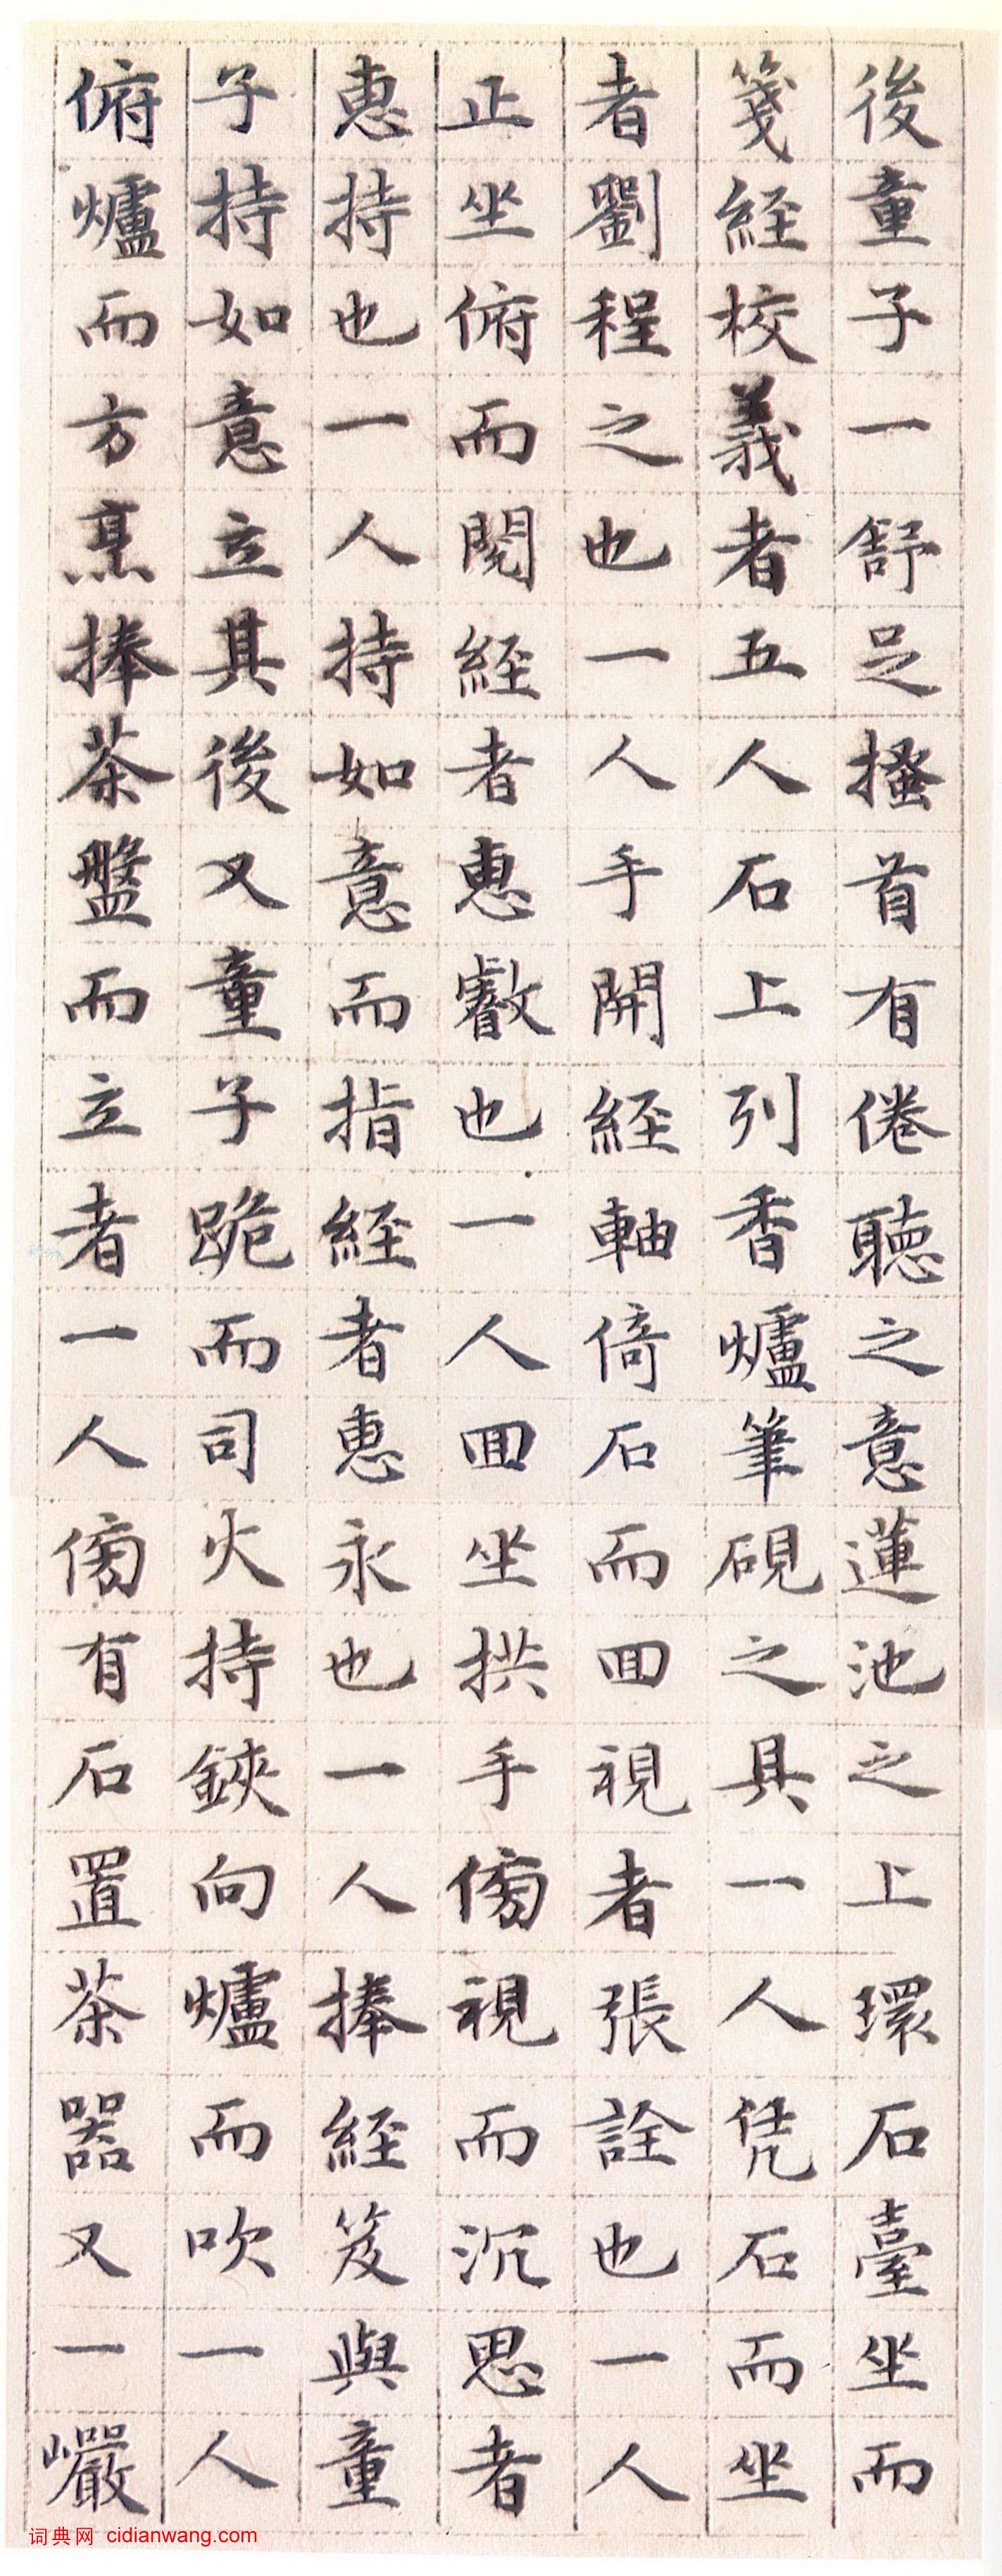 後童子一舒足搔首有倦聽之意蓮池之上環石臺坐而
箋經校義者五人石上列香爐筆硯之具一人凭石而坐
者劉程之也一人手開經軸倚石而回視者張詮也一人
正坐俯而閱經者惠叡也一人回坐拱手傍視而沉思者
惠持也一人持如意而指經者惠永也一人捧經笈與童
子持如意立其後又童子跪而司火持鋏向爐而吹一人
俯爐而方烹捧茶盤而立者一人傍有石置茶器又一巖
词典网 cidianwang.com